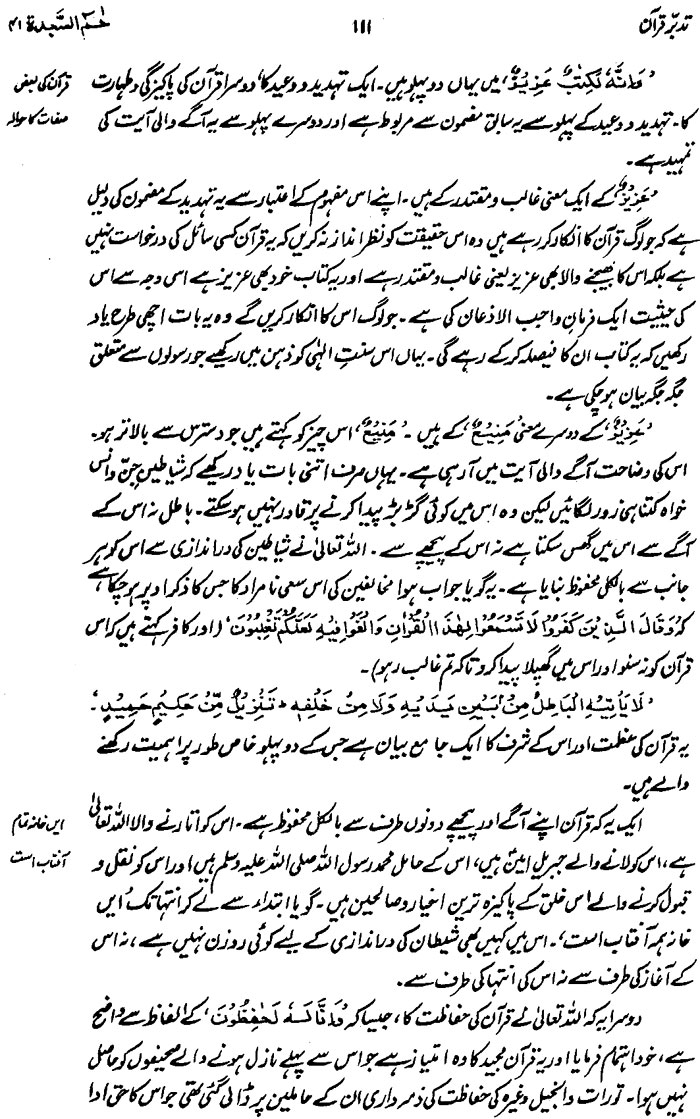 تدبّرِ قرآن ۱۱۱ حٰمٓ السَّجدة ۴۱
’وَاِنَّهٗ لَكِتٰبٌ عَزِيْزٌ‘ میں یہاں دو پہلو ہیں۔ ایک تہدید و وعید کا دوسرا قرآن کی پاکیزگی و طہارت
کا۔ تہدید و وعید کے پہلو سے یہ سابق مضمون سے مربوط ہے اور دوسرے پہلو سے یہ آگے والی آیت کی
تمہید ہے۔
قرآن کی بعض
صفات کا حوالہ
’عَزِيْزٌ‘ کے ایک معنی غالب و مقتدر کے ہیں۔ اپنے اس مفہوم کے اعتبار سے یہ تہدید کے مضمون کی دلیل
ہے کہ جو لوگ قرآن کا انکار کر رہے ہیں وہ اس حقیقت کو نظر انداز نہ کریں کہ یہ قرآن کسی سائل کی درخواست نہیں
ہے بلکہ اس کا بھیجنے والا بھی عزیز یعنی غالب و مقتدر ہے اور یہ کتاب خود بھی عزیز ہے اسی وجہ سے اس
کی حیثیت ایک فرمانِ واجب الاذعان کی ہے۔ جو لوگ اس کا انکار کریں گے وہ یہ بات اچھی طرح یاد
رکھیں کہ یہ کتاب ان کا فیصلہ کر کے رہے گی۔ یہاں اس سنتِ الٰہی کو ذہن میں رکھیے جو رسولوں سے متعلق
جگہ جگہ بیان ہو چکی ہے۔
’عَزِيْزٌ‘ کے دوسرے معنی ’مَنِيْعٌ‘ کے ہیں۔ ’مَنِيْعٌ‘ اس چیز کو کہتے ہیں جو دسترس سے بالاتر ہو۔
اس کی وضاحت آگے والی آیت میں آ رہی ہے۔ یہاں صرف اتنی بات یاد رکھیے کہ شیاطینِ جِنّ و انس
خواہ کتنا ہی زور لگائیں لیکن وہ اس میں کوئی گڑ بڑ پیدا کرنے پر قادر نہیں ہو سکتے۔ باطل نہ اس کے
آگے سے اس میں گھس سکتا ہے نہ اس کے پیچھے سے۔ اللہ تعالیٰ نے شیاطین کی دراندازی سے اس کو ہر
جانب سے بالکل محفوظ بنایا ہے۔ یہ گویا جواب ہوا مخالفین کی اس سعی نامراد کا جس کا ذکر اوپر ہو چکا ہے
کہ ’وَقَالَ الَّذِيْنَ كَفَرُوْا لَا تَسْمَعُوْا لِهٰذَا الْقُرْاٰنِ وَالْغَوْا فِيْهِ لَعَلَّكُمْ تَغْلِبُوْنَ‘ (اور کافر کہتے ہیں کہ اس
قرآن کو نہ سنو اور اس میں گھپلا پیدا کرو تاکہ تم غالب رہو)۔
’لَا يَاْتِيْهِ الْبَاطِلُ مِنْۢ بَيْنِ يَدَيْهِ وَلَا مِنْ خَلْفِهٖ ؕ تَنْزِيْلٌ مِّنْ حَكِيْمٍ حَمِيْدٍ‘۔
یہ قرآن کی عظمت اور اس کے شرف کا ایک جامع بیان ہے جس کے دو پہلو خاص طور پر اہمیت رکھنے
والے ہیں۔
ایک یہ کہ قرآن اپنے آگے اور پیچھے دونوں طرف سے بالکل محفوظ ہے۔ اس کو اتارنے والا اللہ تعالیٰ
ہے، اس کو لانے والے جبریل امینؑ ہیں، اس کے حامل محمد رسول اللہ صلی اللہ علیہ وسلم ہیں اور اس کو نقل و
قبول کرنے والے اس خلق کے پاکیزہ ترین اخیار و صالحین ہیں۔ گویا ابتداء سے لے کر انتہا تک ’ایں
خانہ ہمہ آفتاب است‘۔ اس میں کہیں بھی شیطان کی دراندازی کے لیے کوئی روزن نہیں ہے، نہ اس
کے آغاز کی طرف سے نہ اس کی انتہا کی طرف سے۔
ایں خانہ تمام
آفتاب است
دوسرا یہ کہ اللہ تعالیٰ نے قرآن کی حفاظت کا، جیسا کہ ’وَاِنَّا لَهٗ لَحٰفِظُوْنَ‘ کے الفاظ سے واضح
ہے، خود اہتمام فرمایا اور یہ قرآن مجید کا وہ امتیاز ہے جو اس سے پہلے نازل ہونے والے صحیفوں کو حاصل
نہیں ہوا۔ تورات و انجیل وغیرہ کی حفاظت کی ذمہ داری ان کے حاملین پر ڈالی گئی تھی جو اس کا حق ادا